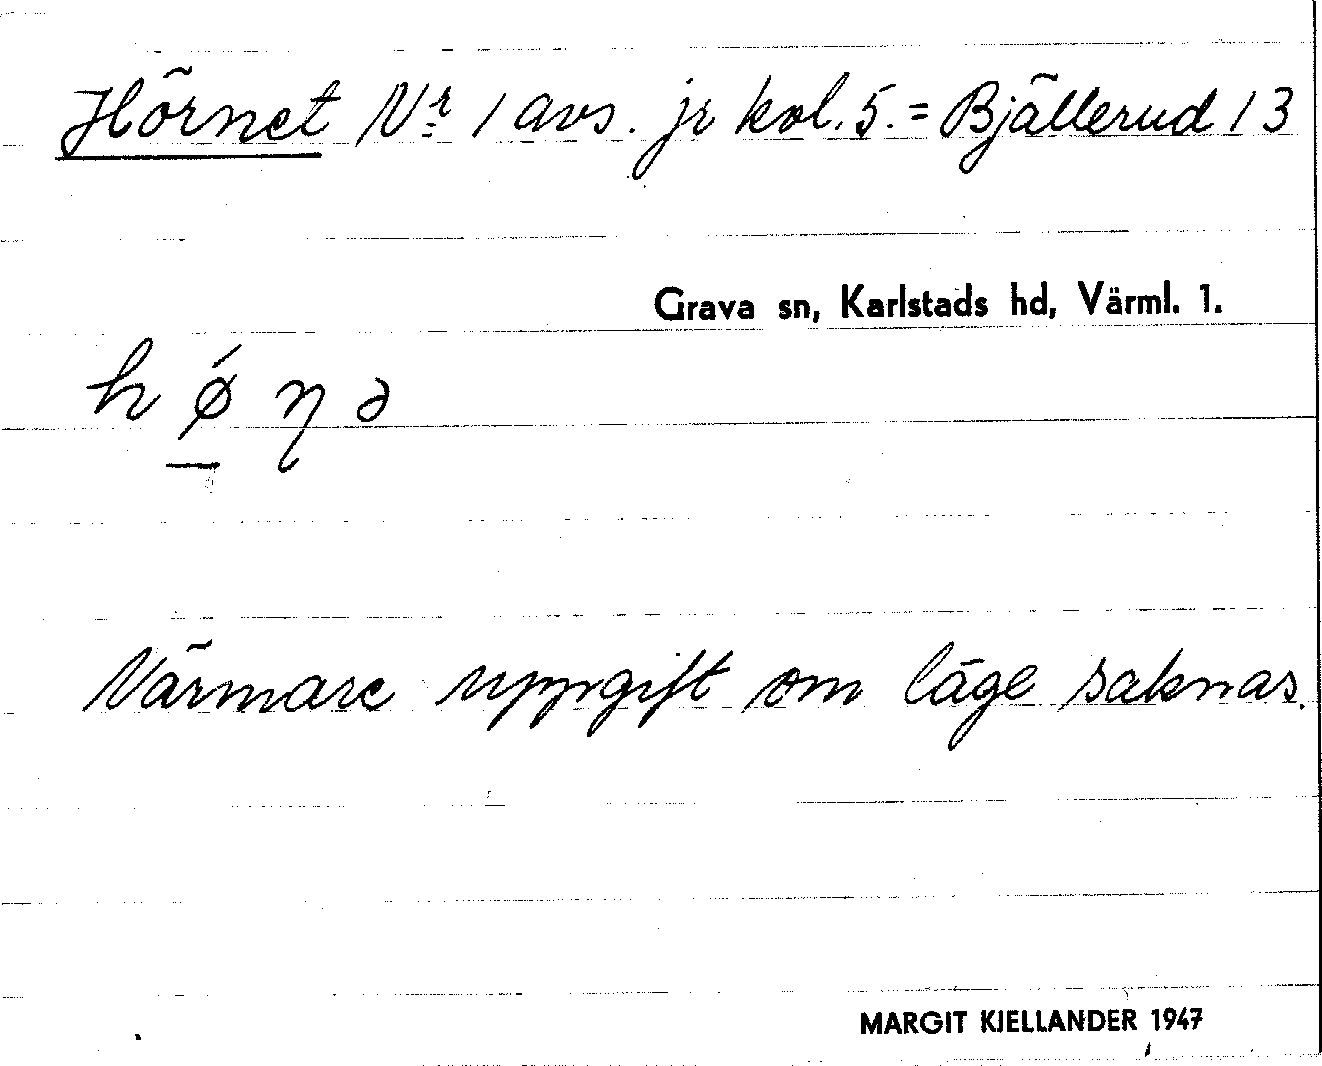 Hörnet Nr 1 avs. jr kol. 5. = Bjällerud 13
Grava sn, Karlstads hd, Värml. 1.
hǿ̱ɳə
Närmare uppgift om läge saknas.
MARGIT KJELLANDER 1947